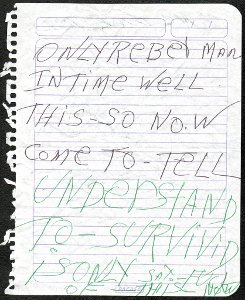 ONLY REBEL MAN
IN TIME WELL
THIS-SO NOW
COME TO-TELL
UNDERSTAND
TO-SURVIVID
IS ONLY SAY-IT
OF THIS